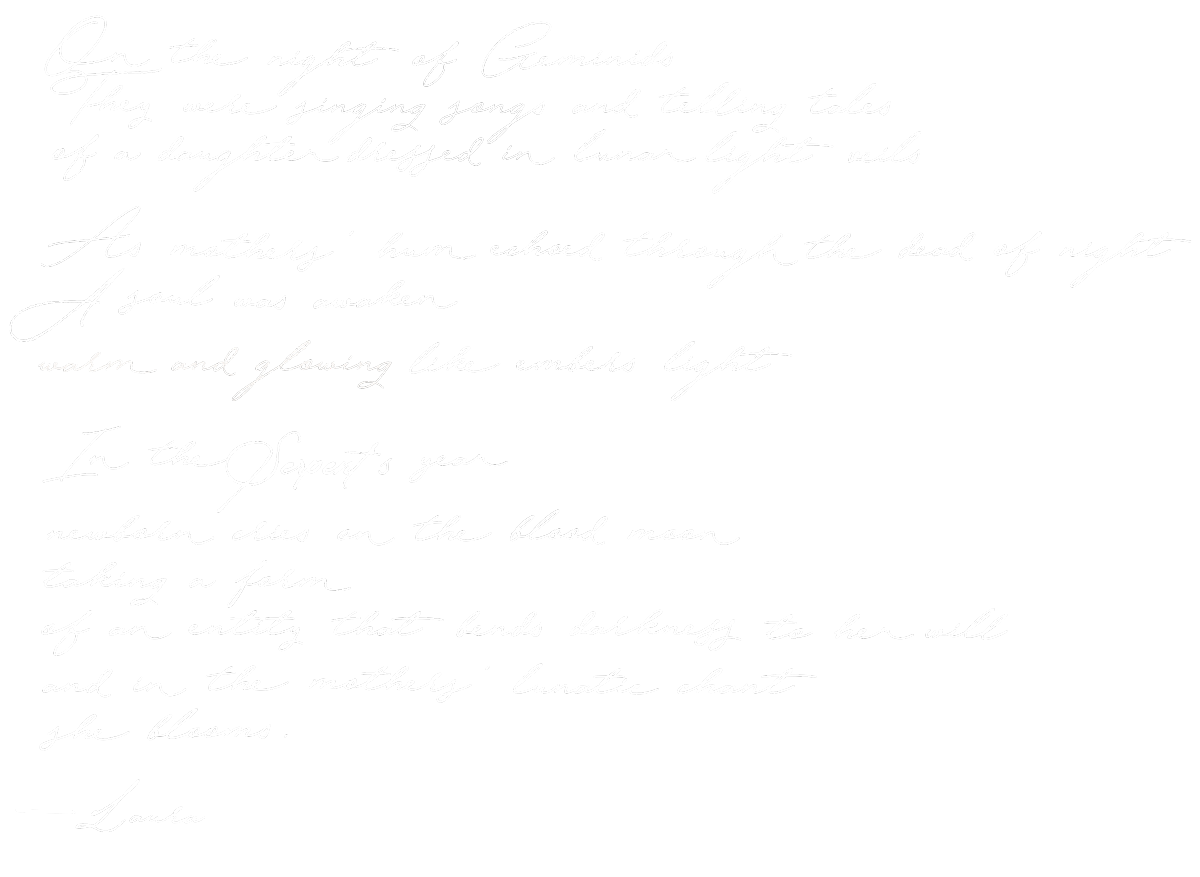 On the night of Geminids
They were singing songs and telling tales
of a daughter dressed in lunar light veils
As mothers' hum echoed through the dead of night
A soul was awoken
warm and glowing like embers light
In the Serpent's year
newborn cries on the blood moon
taking a form
of an entity that bends darkness to her will
and in the mothers' lunatic chant
she blooms.
— Laura